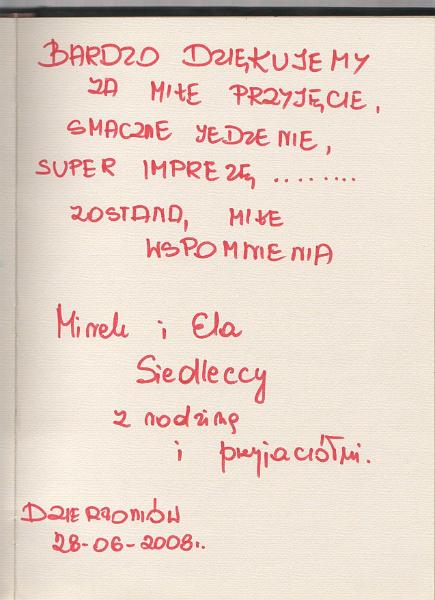 BARDZO DZIĘKUJEMY
ZA MIŁE PRZYJĘCIE,
SMACZNE JEDZENIE,
SUPER IMPREZĘ, ........
ZOSTANĄ, MIŁE
WSPOMNIENIA
Mirek i Ela
Siedleccy
z rodziną
i przyjaciółmi.
DZIERŻONIÓW
28-06-2008..